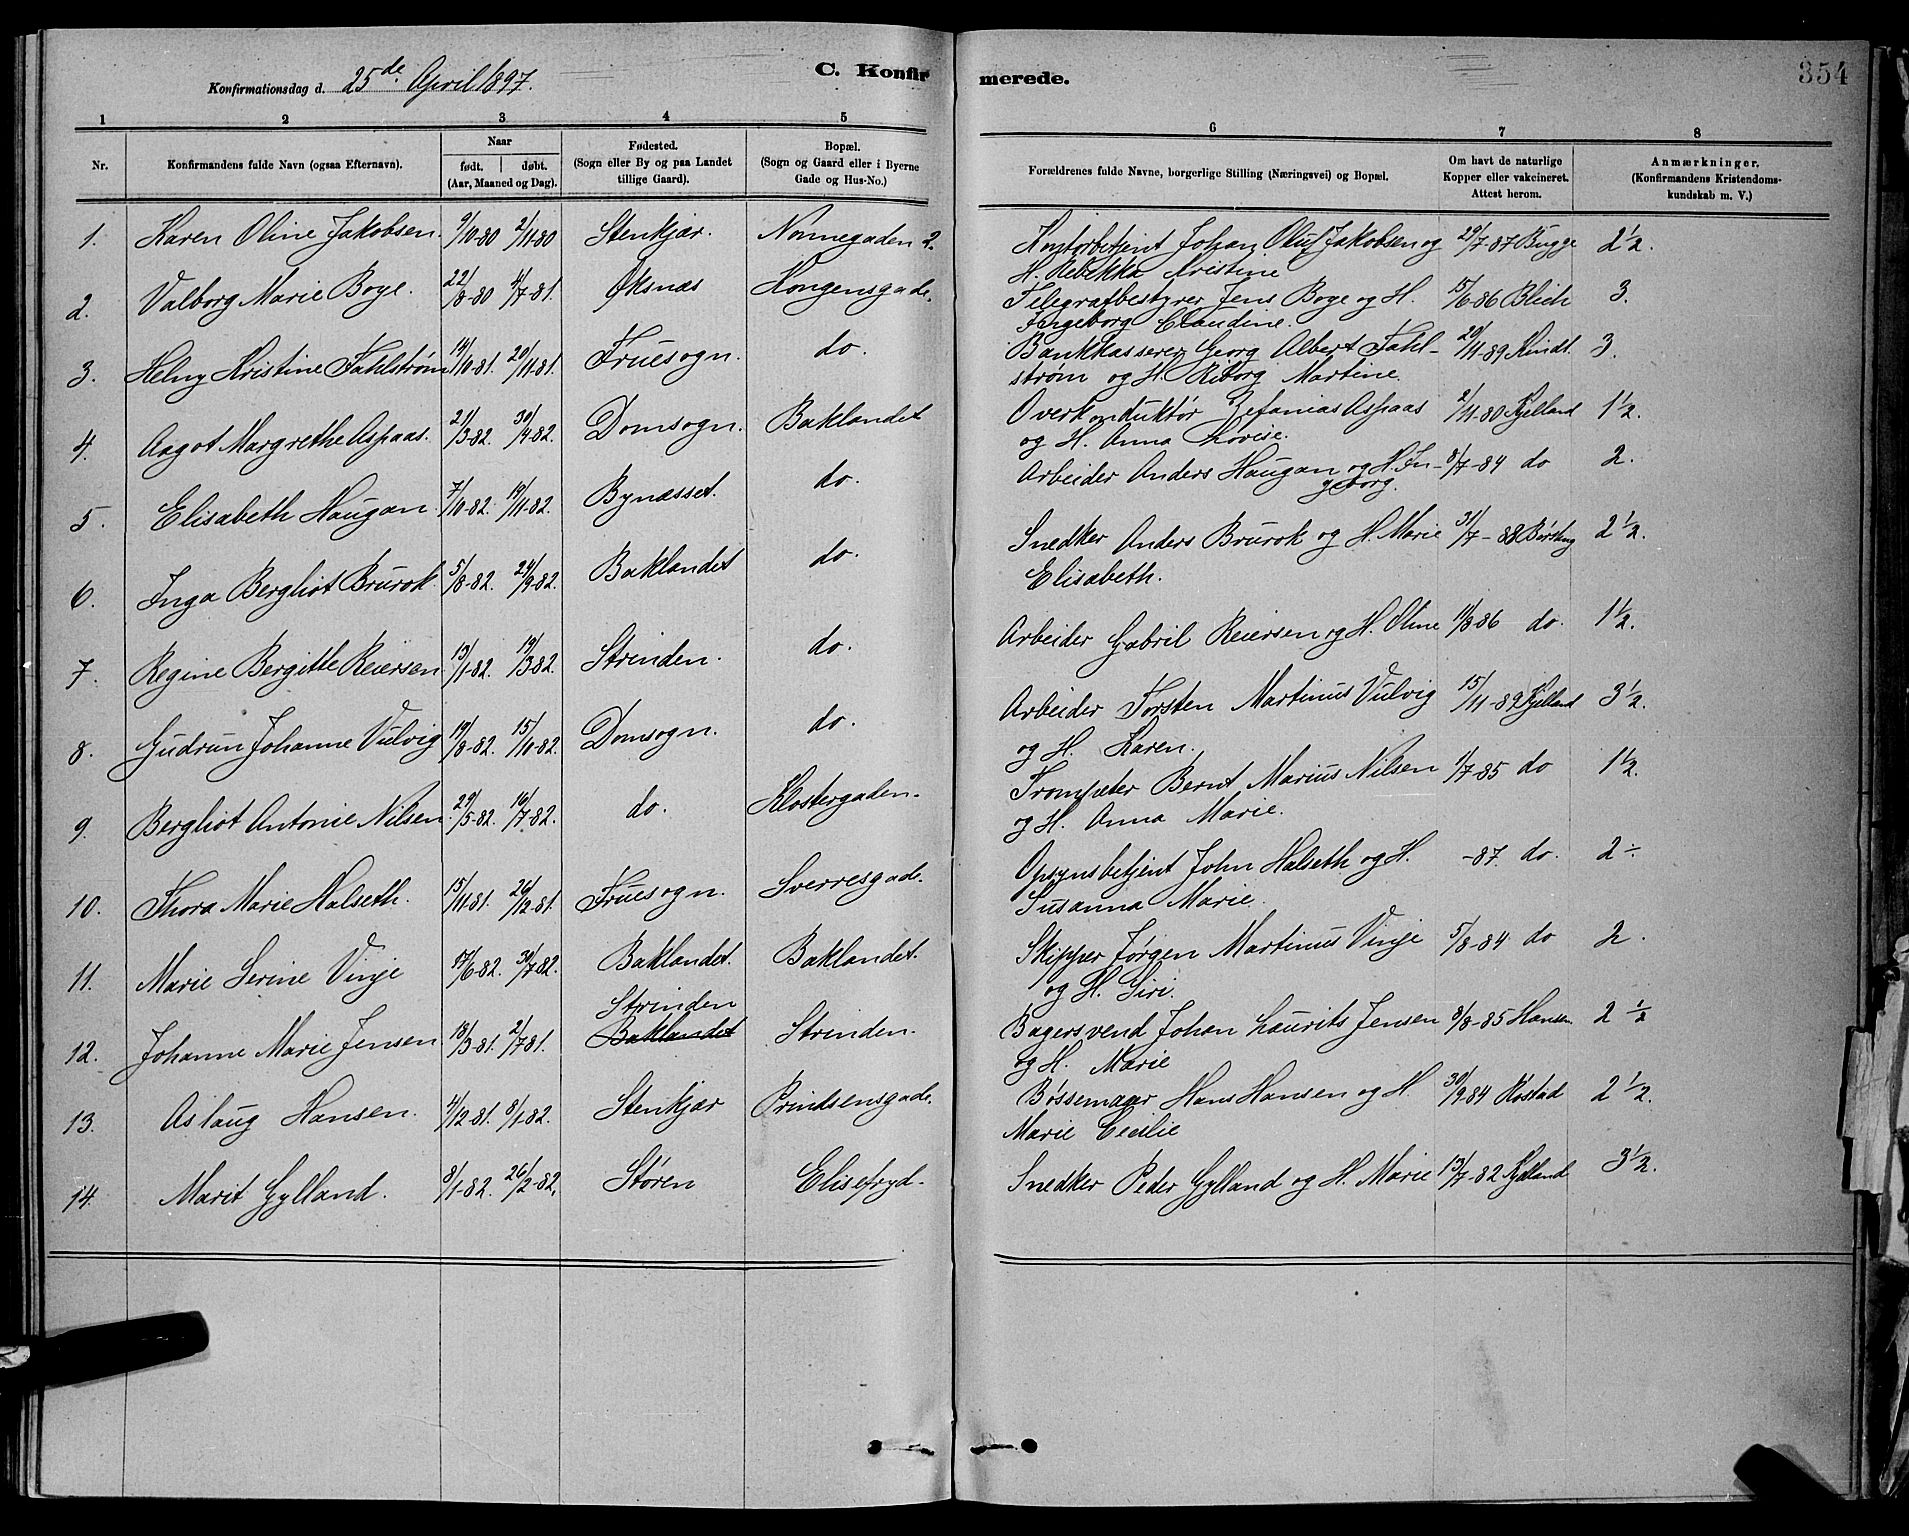 Konfirmationsdag d. 25de April 1897.
C. Konfir
merede.
354
1 2 3 4 5 6 7 8
Nr.
Konfirmandens fulde Navn (ogsaa Efternavn).
Naar
født. døbt.
(Aar, Maaned og Dag).
Fødested.
(Sogn eller By og paa Landet
tillige Gaard).
Bopæl.
(Sogn og Gaard eller i Byerne
Gade og Hus-No.)
Forældrenes fulde Navne, borgerlige Stilling (Næringsvei) og Bopæl.
Om havt de naturlige
Kopper eller vakcineret.
Attest herom.
Anmærkninger.
(Konfirmandens Kristendoms-
kundskab m. V.)
1. Karen Oline Jakobsen. 9/10-80 2/11-80 Stenkjær. Nonnegaden 2. Kontorbetjent Johan Oluf Jakobsen og 29/7-87 Bugge 2 1/2.
H. Rebekka Kristine
2. Valborg Marie Boye. 22/8-80 4/7-81. Øksnæs Kongensgade. Telegrafbestyrer Jens Boye og H. 15/6-86 Blich 3.
Ingeborg Claudine.
3. Helny Kristine Fahlstrøm 14/10-81. 20/11-81. Fruesogn. do. Bankkasserer Georg Albert Fahl- 20/11-89 Kindt. 3.
strøm og H. Riborg Martine.
4. Aagot Margrethe Aspaas. 21/3-82. 30/4-82. Domsogn. Baklandet Overkonduktør Zefanias Aspaas 2/11-80 Kjelland 1 1/2.
og H. Anna Lovise.
5. Elisabeth Haugan. 7/10-82. 19/11-82. Bynæsset. do. Arbeider Anders Haugan og H. In- 8/7-84 do 2.
geborg.
6. Inga Bergliot Brurok. 5/8-82. 24/9-82. Baklandet do. Snedker Anders Brurok og H. Marie 31/7-88 2 1/2.
Elisabeth.
7. Regine Bergitte Reiersen. 13/1-82. 19/3-82. Strinden. do. Arbeider Gabril Reiersen og H. Oline 11/8-86 do. 1 1/2.
8. Gudrun Johanne Vulvig 19/8-82. 15/10-82. Domsogn. do. Arbeider Torsten Martinus Vulvig 15/11-89 Kjelland 3 1/2.
og H. Karen.
9. Bergliot Antonie Nilsen. 29/5-82. 16/7-82. do. Klostergaden. Trompeter Bernt Marius Nilsen 1/7-85 do 1 1/2.
og H. Anna Marie.
10. Thora Marie Halseth. 15/11-81. 26/12-81. Fruesogn. Sverresgade. Opsynsbetjent John Halseth og H. -87. do. 2 ÷
Susanna Marie.
11. Marie Serine Vinje 17/6-82. 30/7-82. Baklandet. Baklandet. Skipper Jørgen Martinus Vinje 5/8-84 do 2.
og H. Siri.
Strinden
12. Johanne Marie Jensen 18/3-81. 2/7-81. Baklandet Strinden. Bagersvend Johan Laurits Jensen 8/8-85 Hansen 2 1/2
og H. Marie
13. Aslaug Hansen. 4/12-81. 8/1-82. Stenkjær Prindsensgade. Bøssemager Hans Hansen og H. 30/9-84 Rostad 2 1/2.
Marie Cecilie
14. Marit Gylland. 8/1-82. 26/2-82. Støren Elisefryd. Snedker Peder Gylland og H. Marie 13/7-82 Kjelland 3 1/2.